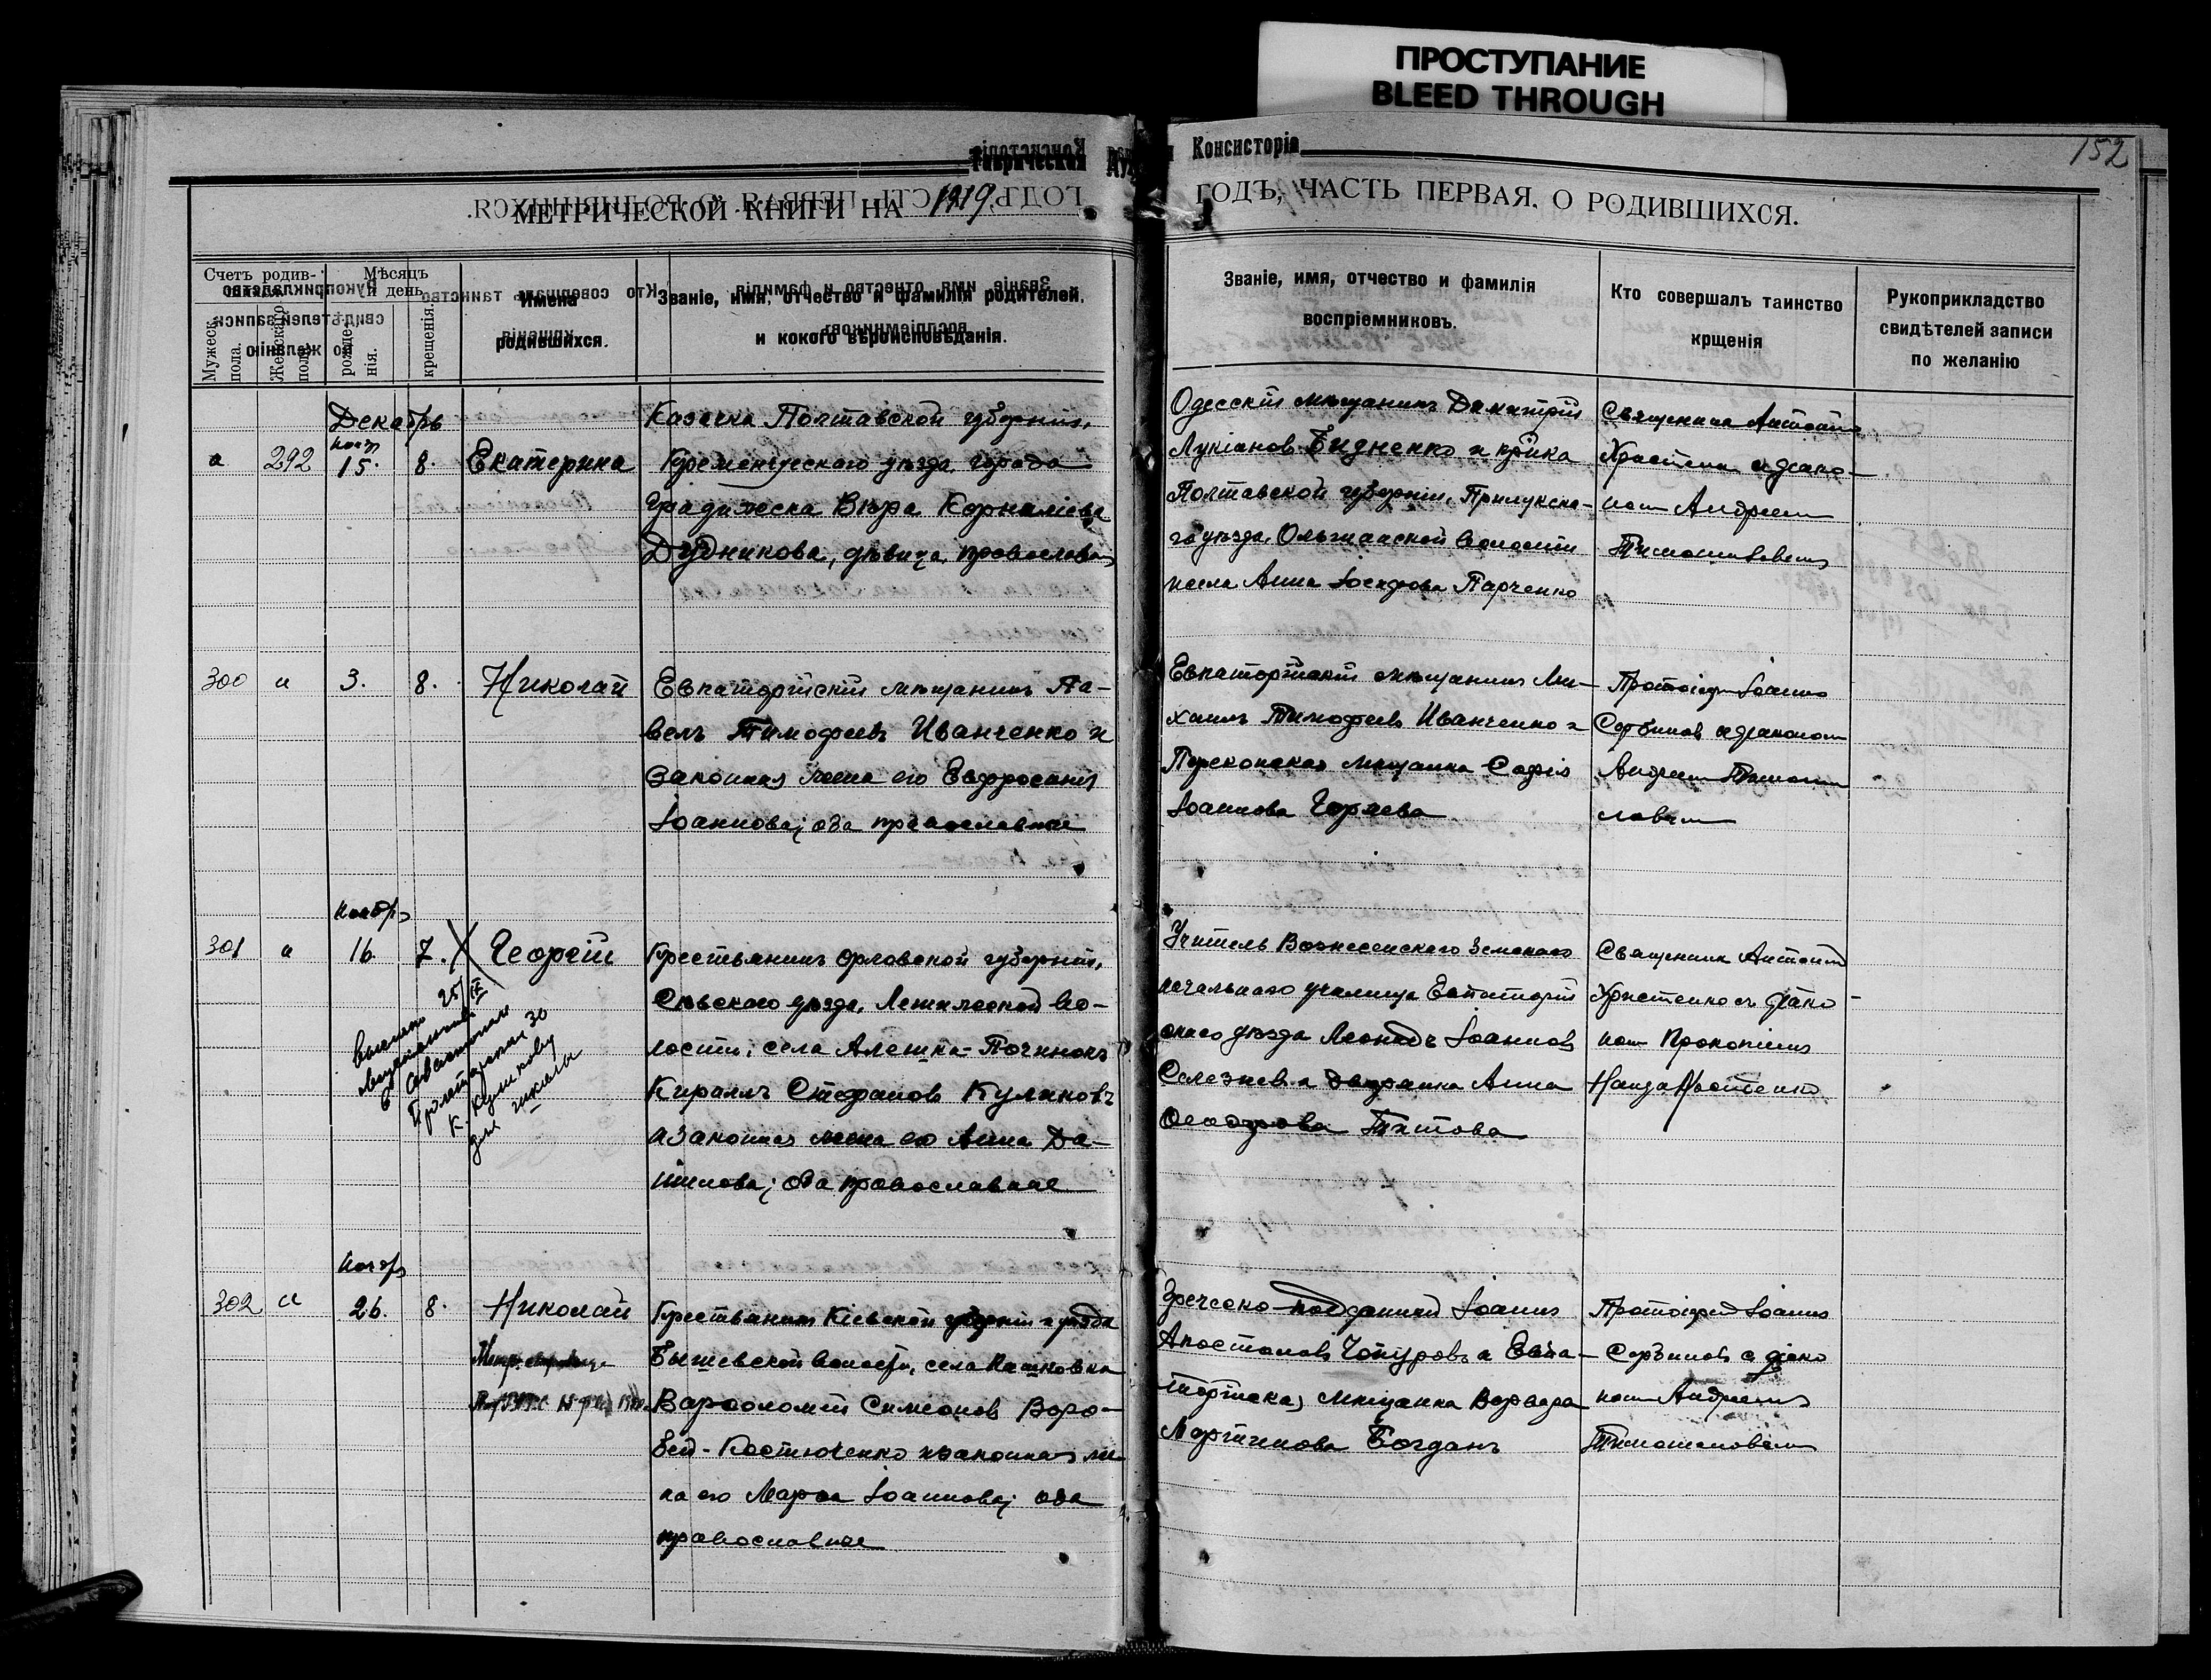 ПРОСТУПАНИЕ
BLEED THROUGH
152
Консисторія
МЕТРИЧЕСКОЙ КНИГИ НА 1919
ГОДЪ, ЧАСТЬ ПЕРВАЯ. О РОДИВШИХСЯ.
Счетъ родив-
Мужеск. пола.
Женскаго пола.
Мѣсяцъ
и день
рожде-
нія.
крещенія.
Имена
родившихся.
Званіе, имя, отчество и фамилія родителей.
и кокого вѣроисповѣданія.
Званіе, имя, отчество и фамилія
воспріемниковъ.
Кто совершалъ таинство
крщенія
Рукоприкладство
свидѣтелей записи
по желанію
Декабрь
292 15. 8. Екатерина
Казачка Полтавской губерніи,
Кременчугскаго уѣзда, города
Градижска Вѣра Корниліева
Дудникова, дѣвица, православн
Одесскій мѣщанинъ Димитрій
Лукіановъ Бидненко и
Полтавской губерніи, Прилукска-
го уѣзда, Ольшанской волости
Анна Іосифова Парченко
Священникъ Антоній
Христенко съ діако-
ном Андреем
Тимошевским
300 и 3. 8. Николай
Евпаторійскій мѣщанинъ Па-
велъ Тимофеевъ Иванченко и
законная жена его Евфросинія
Іоаннова; оба православные
Евпаторійскій мѣщанинъ Ми-
хаилъ Тимофеевъ Иванченко и
Перекопская мѣщанка Софія
Іоаннова
Протоіерей Іоаннъ
Сербиновъ съ діакономъ
Андреем
Ноябр
301 и 16. 7. Георгій
Крестьянинъ Орловской губерніи,
Сѣвскаго уѣзда, во-
лости, села Алешка-Починокъ
Кириллъ Стефановъ Куликовъ
и законная жена его Анна Да-
ніилова; оба православные
Учитель Вознесенскаго Земскаго
начальнаго училища Евпаторій
скаго уѣзда Леонидъ Іоанновъ
Селезнев и дворянка Анна
Ѳеодорова Титова
Священник Антоній
Христенко съ діако-
ном Прокопіем
25/IX
в Севастополь
30
Куликову
для школы
Ноябр
302 и 26. 8. Николай
Крестьянинъ Кіевской губерніи и уѣзда
Бышевской волости, села Пашковка
Варѳоломей Симеонов Воро-
бей-Костюченко и законная же-
на его Марѳа Іоаннова; оба
православные
Греческо-подданный Іоаннъ
Апостоловъ и Евпа-
торійская мѣщанка Варвара
Мартинова Богданъ
Протоіерей Іоаннъ
Сербиновъ с діако
ном Андреем